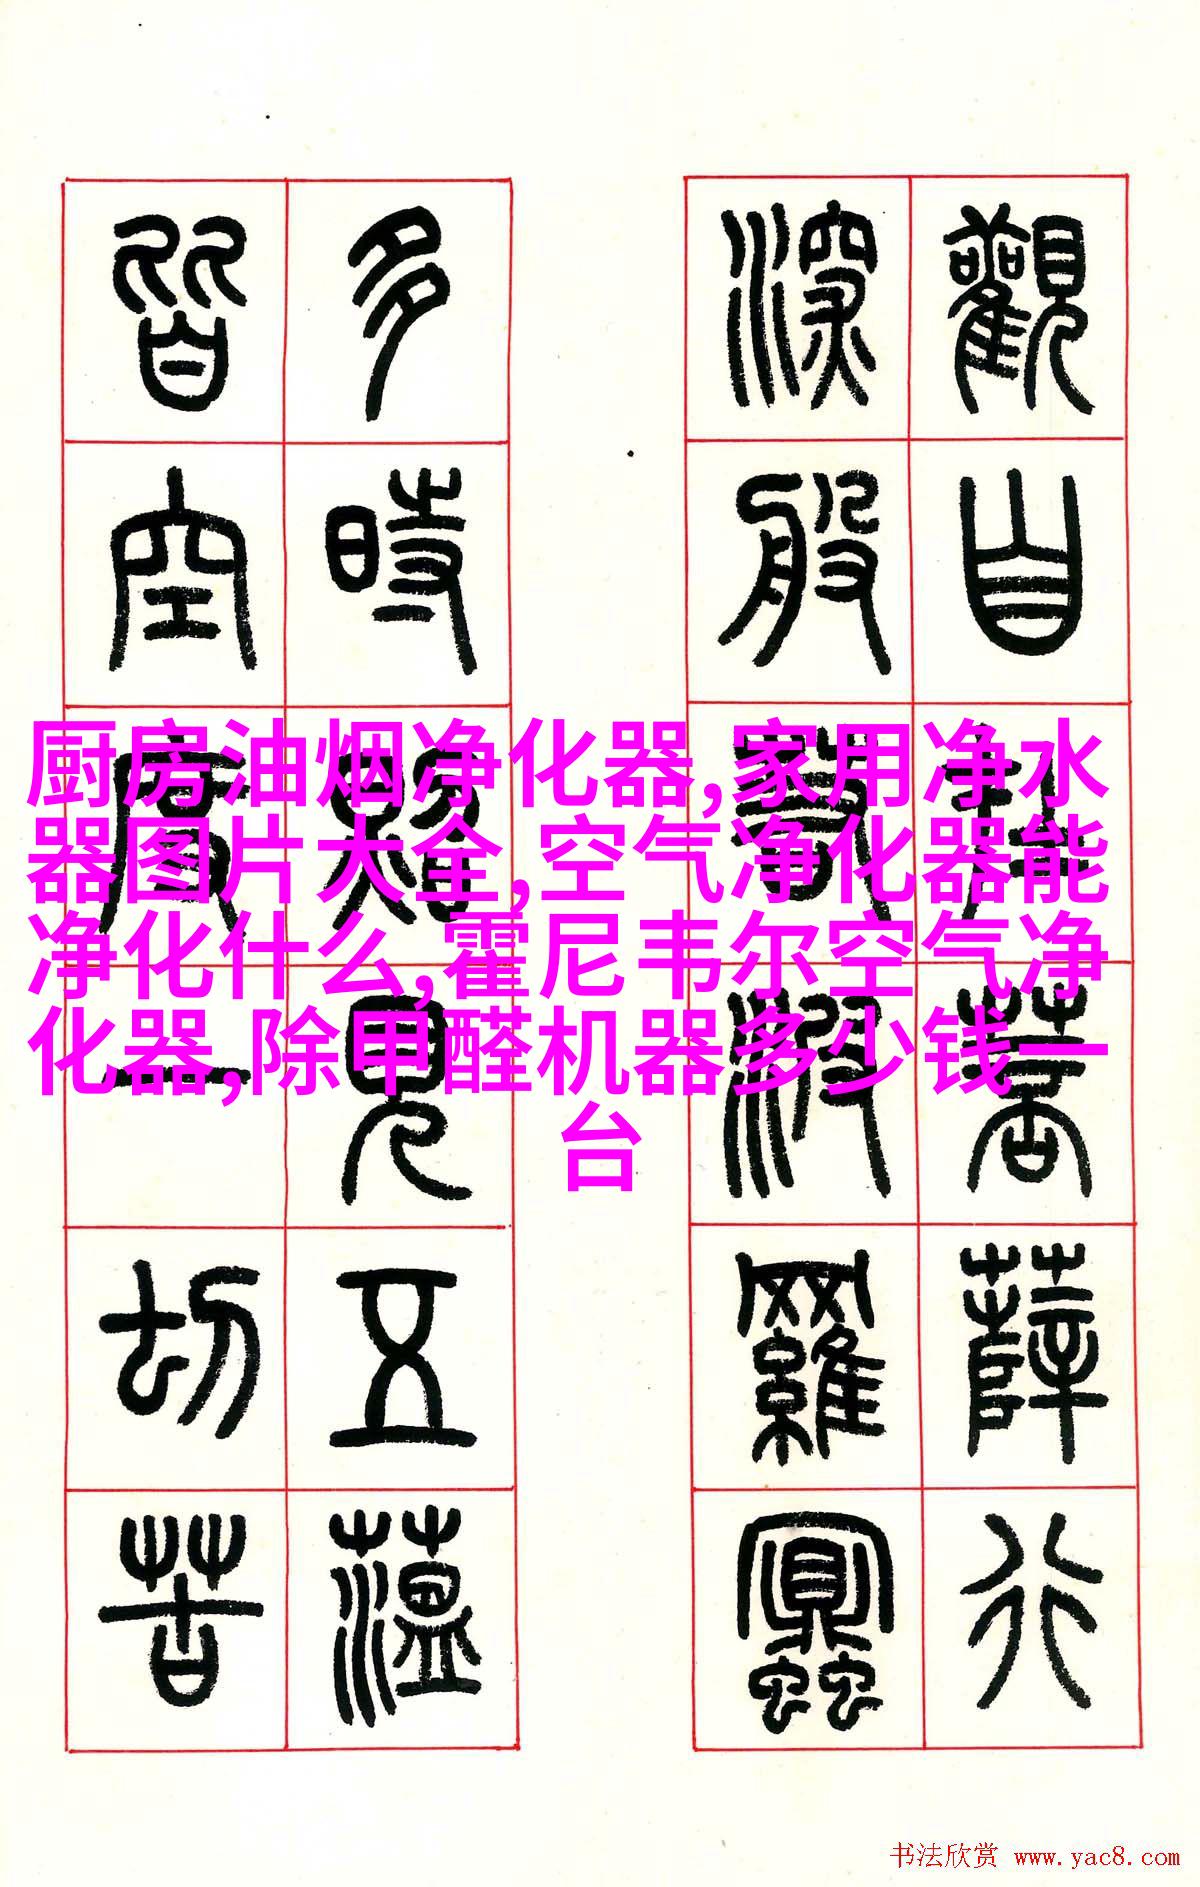 觀自在菩薛行
深般若波羅蜜
多時照見五薀
皆空度一切苦
厨房油烟净化器,家用净水
器图片大全,空气净化器能
净化什么,霍尼韦尔空气净
化器,除甲醛机器多少钱一
台
书法欣赏 www.yac8.com